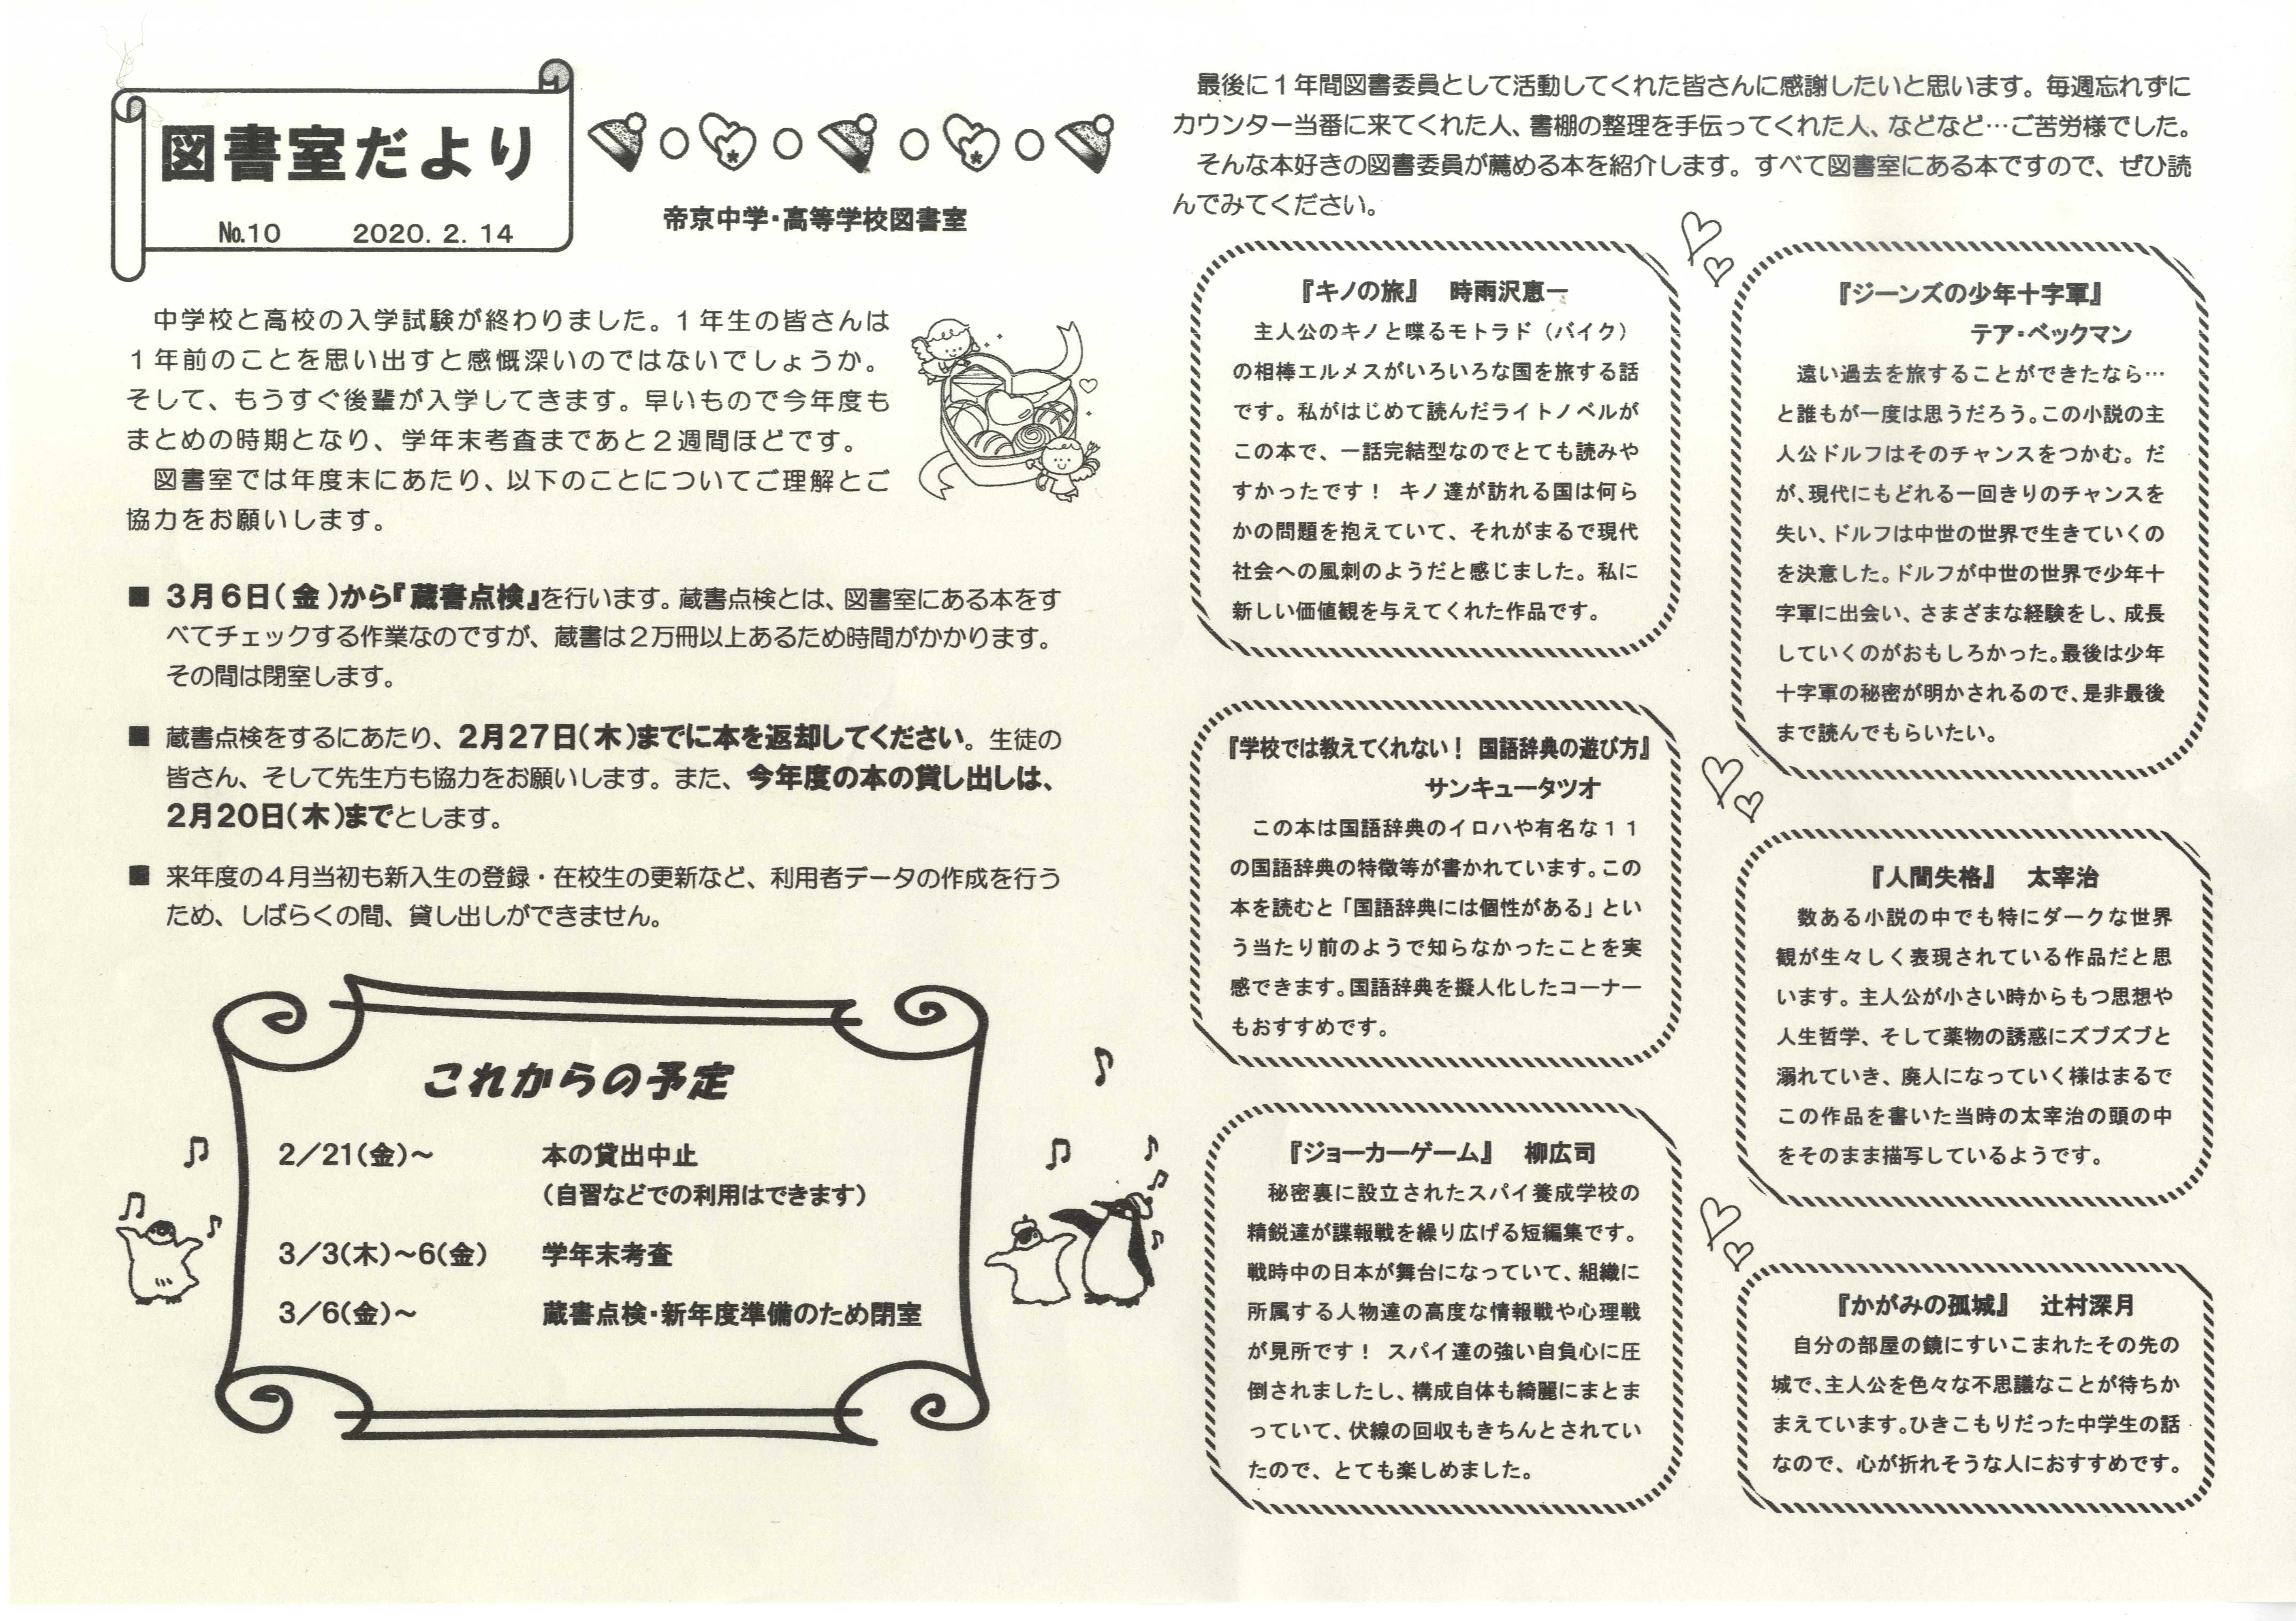 図書室だより
№10　2020. 2. 14
帝京中学・高等学校図書室
中学校と高校の入学試験が終わりました。1年生の皆さんは
1年前のことを思い出すと感慨深いのではないでしょうか。
そして、もうすぐ後輩が入学してきます。早いもので今年度も
まとめの時期となり、学年末考査まであと2週間ほどです。
図書室では年度末にあたり、以下のことについてご理解とご
協力をお願いします。
■ 3月6日(金)から『蔵書点検』を行います。蔵書点検とは、図書室にある本をす
べてチェックする作業なのですが、蔵書は2万冊以上あるため時間がかかります。
その間は閉室します。
■ 蔵書点検をするにあたり、2月27日(木)までに本を返却してください。生徒の
皆さん、そして先生方も協力をお願いします。また、今年度の本の貸し出しは、
2月20日(木)までとします。
■ 来年度の4月当初も新入生の登録・在校生の更新など、利用者データの作成を行う
ため、しばらくの間、貸し出しができません。
これからの予定
2/21(金)～　本の貸出中止
（自習などでの利用はできます）
3/3(木)～6(金)　学年末考査
3/6(金)～　蔵書点検・新年度準備のため閉室
最後に1年間図書委員として活動してくれた皆さんに感謝したいと思います。毎週忘れずに
カウンター当番に来てくれた人、書棚の整理を手伝ってくれた人、などなど…ご苦労様でした。
そんな本好きの図書委員が薦める本を紹介します。すべて図書室にある本ですので、ぜひ読
んでみてください。
『キノの旅』　時雨沢恵一
主人公のキノと喋るモトラド（バイク）
の相棒エルメスがいろいろな国を旅する話
です。私がはじめて読んだライトノベルが
この本で、一話完結型なのでとても読みや
すかったです！ キノ達が訪れる国は何ら
かの問題を抱えていて、それがまるで現代
社会への風刺のようだと感じました。私に
新しい価値観を与えてくれた作品です。
『学校では教えてくれない！ 国語辞典の遊び方』
サンキュータツオ
この本は国語辞典のイロハや有名な11
の国語辞典の特徴等が書かれています。この
本を読むと「国語辞典には個性がある」とい
う当たり前のようで知らなかったことを実
感できます。国語辞典を擬人化したコーナー
もおすすめです。
『ジョーカーゲーム』　柳広司
秘密裏に設立されたスパイ養成学校の
精鋭達が諜報戦を繰り広げる短編集です。
戦時中の日本が舞台になっていて、組織に
所属する人物達の高度な情報戦や心理戦
が見所です！ スパイ達の強い自負心に圧
倒されましたし、構成自体も綺麗にまとま
っていて、伏線の回収もきちんとされてい
たので、とても楽しめました。
『ジーンズの少年十字軍』
テア・ベックマン
遠い過去を旅することができたなら…
と誰もが一度は思うだろう。この小説の主
人公ドルフはそのチャンスをつかむ。だ
が、現代にもどれる一回きりのチャンスを
失い、ドルフは中世の世界で生きていくの
を決意した。ドルフが中世の世界で少年十
字軍に出会い、さまざまな経験をし、成長
していくのがおもしろかった。最後は少年
十字軍の秘密が明かされるので、是非最後
まで読んでもらいたい。
『人間失格』　太宰治
数ある小説の中でも特にダークな世界
観が生々しく表現されている作品だと思
います。主人公が小さい時からもつ思想や
人生哲学、そして薬物の誘惑にズブズブと
溺れていき、廃人になっていく様はまるで
この作品を書いた当時の太宰治の頭の中
をそのまま描写しているようです。
『かがみの孤城』　辻村深月
自分の部屋の鏡にすいこまれたその先の
城で、主人公を色々な不思議なことが待ちか
まえています。ひきこもりだった中学生の話
なので、心が折れそうな人におすすめです。